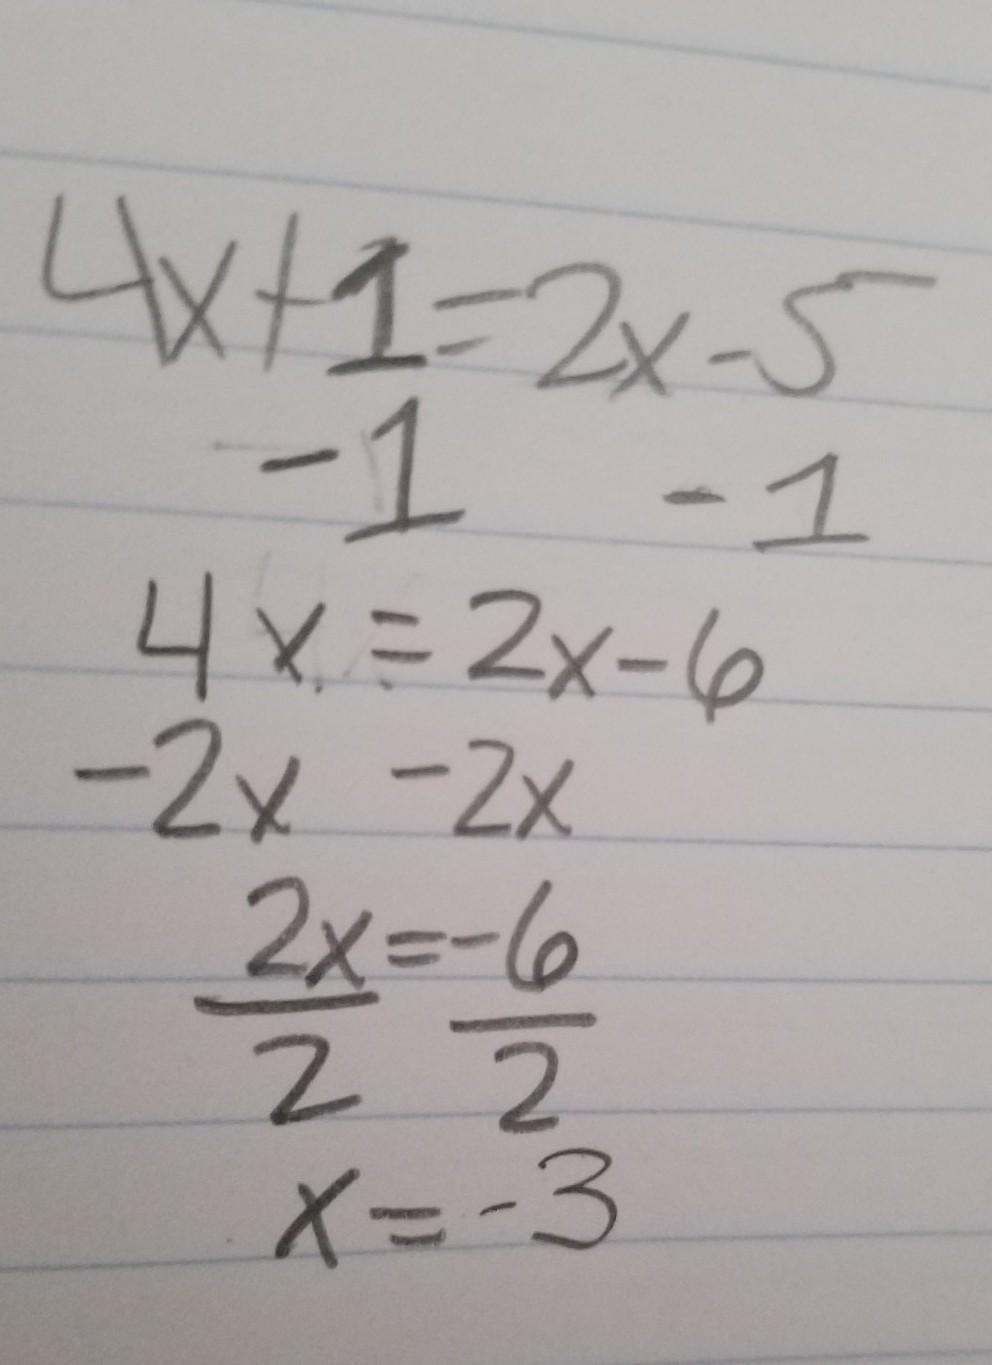 4x+1=2x-5
-1 -1
4x=2x-6
-2x -2x
2x=-6
2 2
x=-3